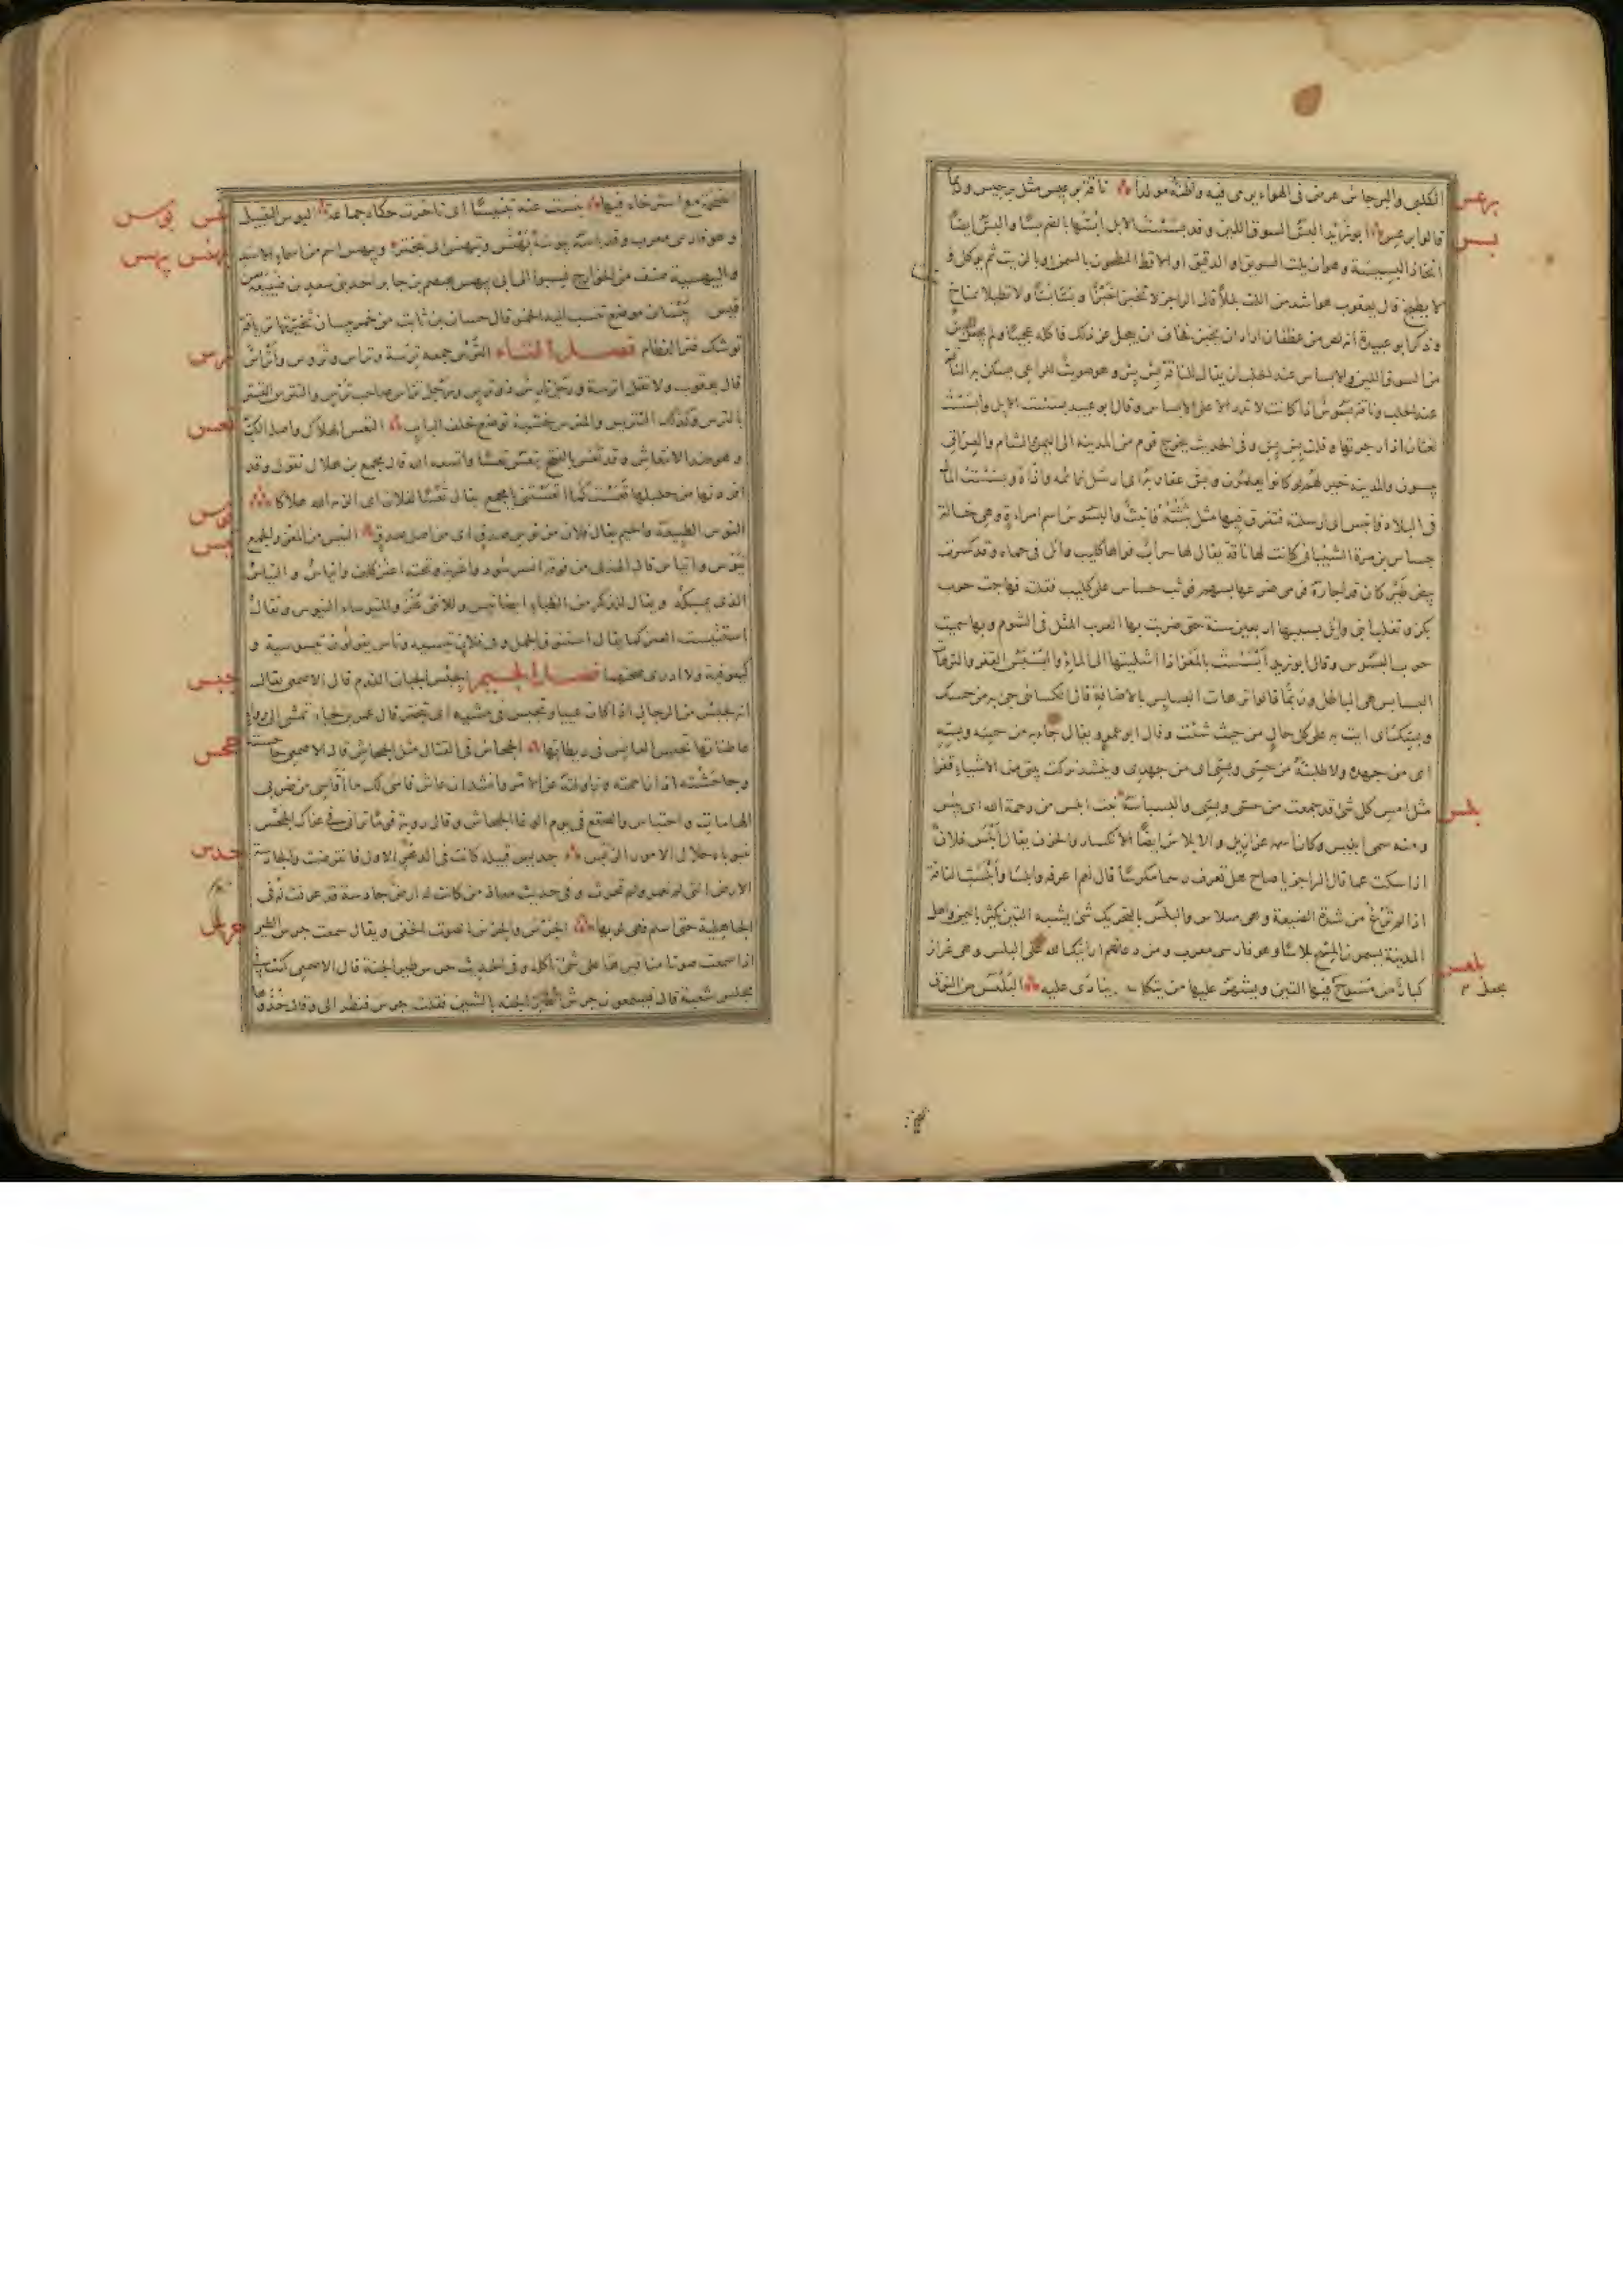 الكلبى والبرجاس غرض فى الهواء يرمى فيه واظنه مولدا ناقة برعيس مثل برجيس وربما
برعس
قالوا برعس ابو زيد البس السوق اللين وقد بسست الابل ابسها بالضم بسا والبس ايضا
بسس
اتخاذ البسيسة وهو ان يلت السويق او الدقيق او الاقط المطحون بالسمن او بالزيت ثم يوكل و
لا يطبخ قال يعقوب هو اشد من اللت بللا قال الراجز لا تخبزا خبزا وبسا بسا ولا تطيلا بمناخ
وذكر ابو عبيدة انه لص من غطفان اراد ان يخبز فخاف ان يعجل عن ذلك فاكله عجينا ولم يجعل
من السوق اللين والابساس عند الحلب ان يقال للناقة بس بس وهو صويت للراعى يسكن به الناقة
عند الحلب وناقة بسوس اذا كانت لا تدر الا على الابساس وقال ابو عبيد بسست الابل وابسست
لغتان اذا زجرتها وقلت بس بس وفى الحديث يخرج قوم من المدينة الى اليمن والشام والعراق
يبسون والمدينة خير لهم لو كانوا يعلمون وبس عقاربه اى ارسل نمائمه واذاه وبسست المال
فى البلاد فانبس اى ارسلته فتفرق فيها مثل بثثته فانبث والبسوس اسم امراة وهى خالة
جساس بن مرة الشيبانى كانت لها ناقة يقال لها سراب فراها كليب وائل فى حماه وقد كسرت
بيض طير كان قد اجاره فرمى ضرعها بسهم فوثب جساس على كليب فقتله فهاجت حرب
بكر وتغلب ابنى وائل بسببها اربعين سنة حتى ضربت بها العرب المثل فى الشوم وبها سميت
حرب البسوس وقال ابو زيد ابسست بالمعز اذا اشليتها الى الماء والبسبس القفر والترهات
البسابس هى الباطل وربما قالوا ترهات البسابس بالاضافة قال الكسائى جئ به من حسك
وبسك اى ايت به على كل حال من حيث شئت وقال ابو عمرو يقال جاء به من حسه وبسه
اى من جهده ولاطلبنه من حسى وبسى اى من جهدى وينشد تركت بيتى من الاشياء قفرا
مثل امس كل شئ قد جمعت من حسى وبسى والبسباسة نبت ابلس من رحمة الله اى يئس
بلس
ومنه سمى ابليس وكان اسمه عزازيل والابلاس ايضا الانكسار والحزن يقال ابلس فلان
اذا سكت غما قال الراجز يا صاح هل تعرف رسما مكرسا قال نعم اعرفه وابلسا وابلست الناقة
اذا لم ترغ من شدة الضبعة وهى مبلاس والبلس بالتحريك شئ يشبه التين يكثر باليمن واهل
المدينة يسمون المسح بلاسا وهو فارسى معرب ومن دعائهم ارانيك الله على البلس وهى غرائر
كبار من مسوح فيها التين ويشهر عليها من ينكل به ينادى عليه البلعس من النوق
بلعس
يجعل
الضخمة مع استرخاء فيها بنست عنه تبنيسا اى تاخرت حكاه جماعة البوس التقبيل
بنس بوس
وهو فارسى معرب وقد باسه يبوسه تبهنس اى تبختر وبيهس اسم من اسماء الاسد
بهنس بيهس
والبيهسية صنف من الخوارج نسبوا الى ابى بيهس هيصم بن جابر احد بنى سعد بن ضبيعة بن
قيس بيسان موضع تنسب اليه الخمر قال حسان بن ثابت من خمر بيسان تخيرتها ترياقة
توشك فتر العظام فصل التاء الترس جمعه ترسة وتراس وتروس واتراس
ترس
قال يعقوب ولا تقل اترسة ورجل تارس ذو ترس ورجل تراس صاحب ترس والتترس التستر
بالترس وكذلك التتريس والمترس خشبة توضع خلف الباب التعس الهلاك واصله الكب
تعس
وهو ضد الانتعاش وقد تعس بالفتح يتعس تعسا واتعسه الله قال مجمع بن هلال تقول وقد
افردتها من حليلها تعست كما اتعستنى يا مجمع يقال تعسا لفلان اى الزمه الله هلاكا
التوس الطبيعة والخيم يقال فلان من توس صدق اى من اصل صدق التيس من المعز والجمع
توس
تيس
تيوس واتياس قال الهذلى من فوقه انسر سود واغربة وتحته اعنز كلف واتياس والتياس
الذى يمسكه ويقال للذكر من الظباء ايضا تيس وللانثى عنز والمتيوساء التيوس ويقال
استتيست العنز كما يقال استنوق الجمل وفى فلان تيسية وناس يقولون تيسوسية و
كيفوفية ولا ادرى ما صحتهما فصل الجيم الجبس الجبان الفدم قال الاصمعى يقال
جبس
انه لجبس من الرجال اذا كان عييا وتجبس فى مشيه اى تبختر قال عمر بن لجاء تمشى الى رواء
عاطناتها تجبس العانس فى ريطاتها الجحاس فى القتال مثل الجحاش قال الاصمعى جاحسته
جحس
وجاحشته اذا زاحمته وزاولته على الامر وانشد ان عاش قاسى لك ما اقاسى من ضربى
الهامات واحتباسى والصقع فى يوم الوغا الجحاس وقال روبة
جديس قبيلة كانت فى الدهر الاول فانقرضت والجادسة
جدس
الارض التى لم تعمر ولم تحرث وفى حديث معاذ من كانت له ارض جادسة قد عرفت له فى
الجاهلية حتى اسلم فهى لربها الجرس والجرس الصوت الخفى ويقال سمعت جرس الطير
جرس
اذا سمعت صوت مناقيرها على شئ تاكله وفى الحديث جرس طير الجنة قال الاصمعى كنت فى
مجلس شعبة قال فيسمعون جرش طير الجنة بالشين فقلت جرس فنظر الى وقال خذوها